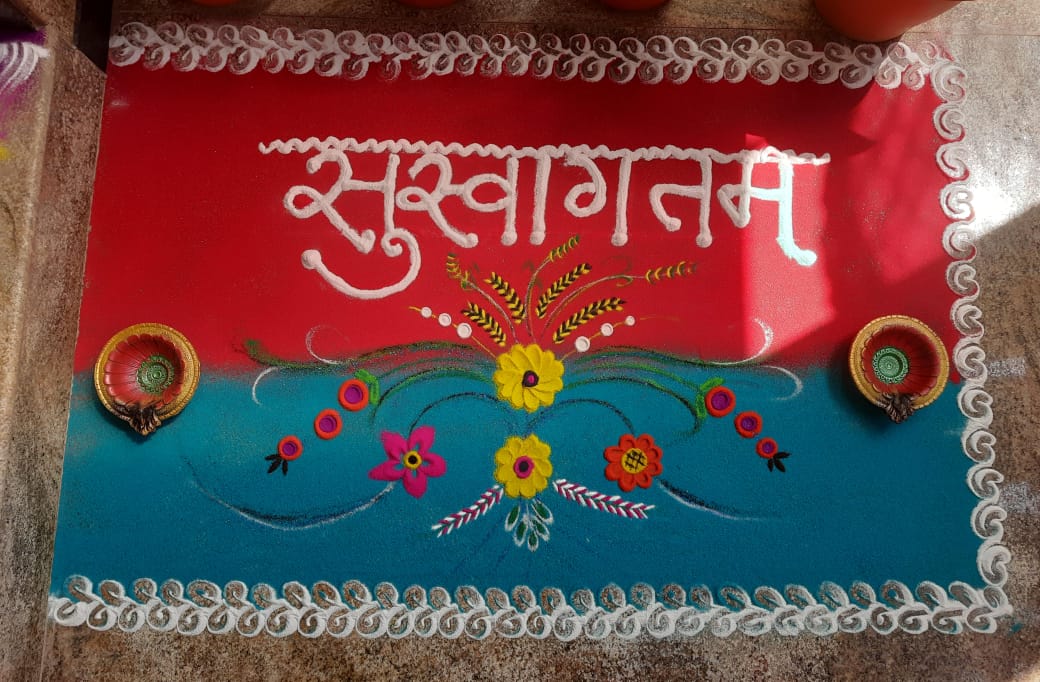 सुस्वागतम